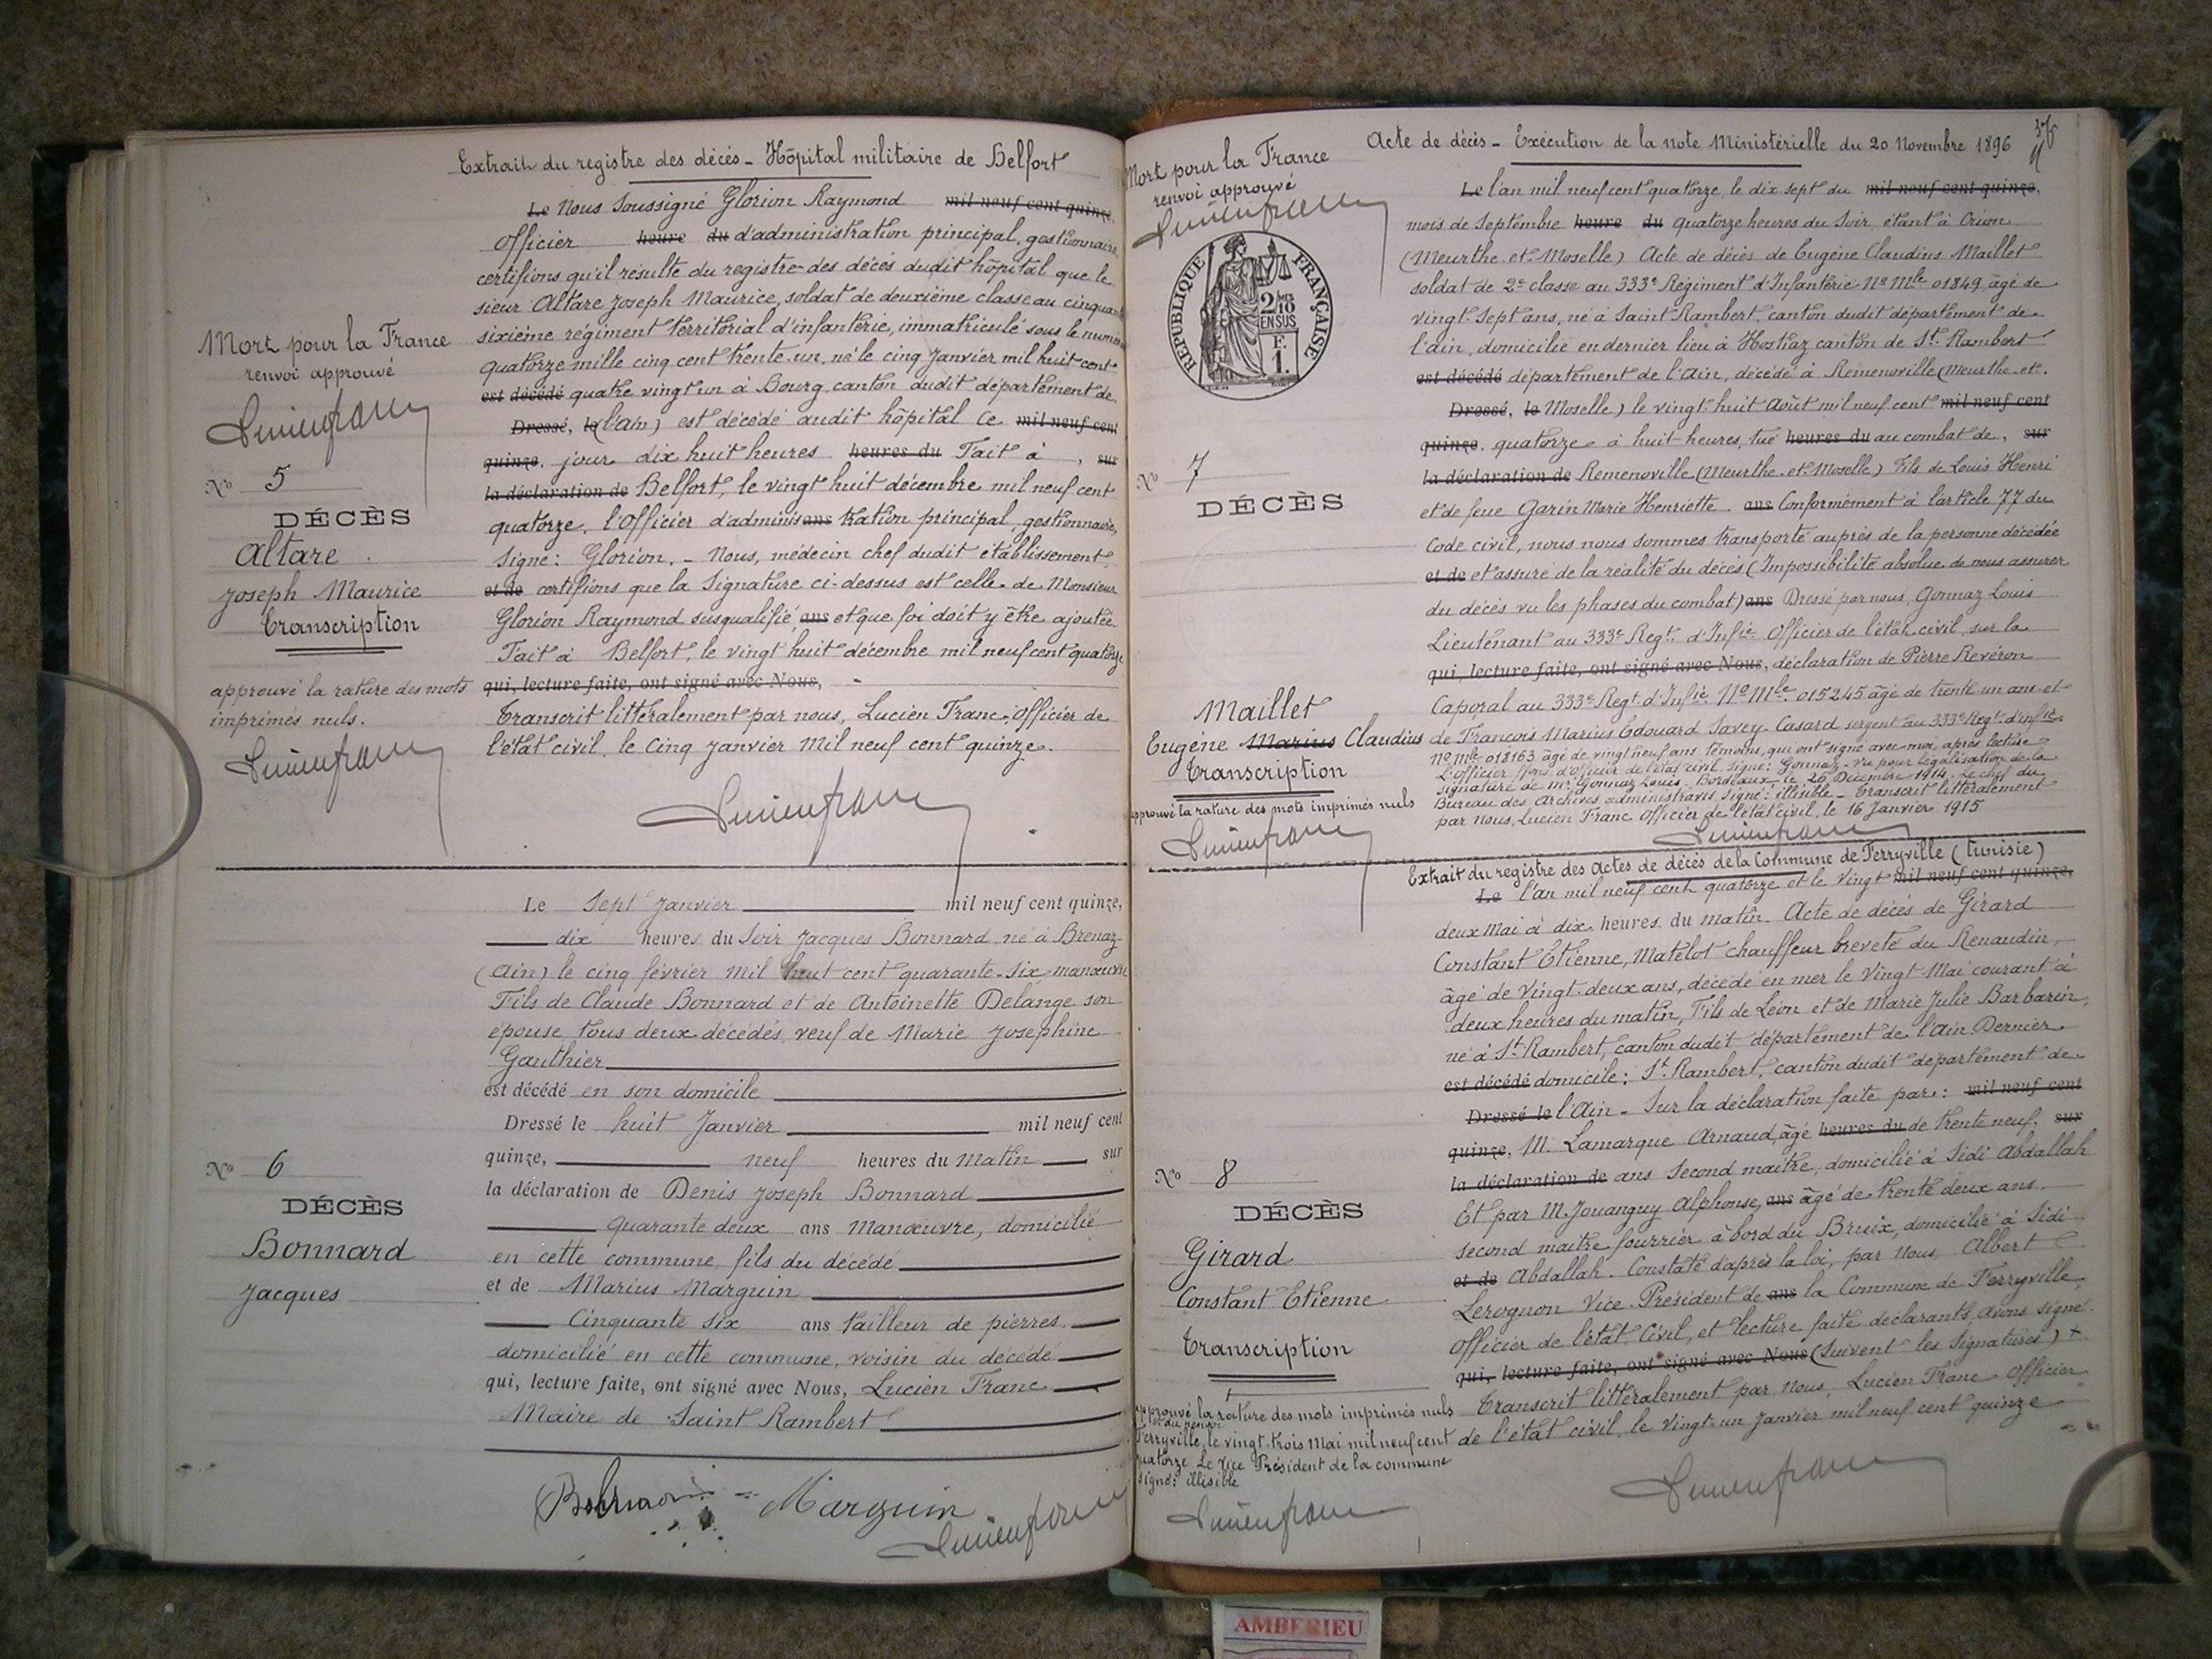 Extrait du registre des décés - Hôpital militaire de Belfort
Le Nous Soussigné Glorion Raymond mil neuf cent quinze,
Officier heure du d'administration principal, gestionnaire
certifions qu'il résulte du registre des décés dudit hôpital que le
sieur Altare Joseph Maurice, soldat de deuxième classe au cinquante
sixième régiment territorial d'infanterie, immatriculé sous le numéro
quatorze mille cinq cent trente-un, né le cinq Janvier mil huit cent
est décédé quatre vingt un à Bourg, canton dudit département de
Dressé, le (l'ain) est décédé audit hôpital ce mil neuf cent
quinze, jour dix huit heures heures du Fait à , sur
la déclaration de Belfort, le vingt huit décembre mil neuf cent
quatorze, l'Officier d'adminis ans tration principal, gestionnaire,
Signé: Glorion. - Nous, médecin chef dudit établissement,
et de certifions que la Signature ci-dessus est celle de Monsieur
Glorion Raymond susqualifié, ans et que foi doit y être ajoutée
Fait à Belfort, le vingt huit décembre mil neuf cent quatorze
qui, lecture faite, ont signé avec Nous, -
Transcrit littéralement par nous, Lucien Franc, Officier de
l'état civil, le Cinq Janvier Mil neuf cent quinze.
Lucien franc
Mort pour la France
renvoi approuvé
Lucien franc
No 5
DÉCÈS
Altare
Joseph Maurice
Transcription
approuvé la rature des mots
imprimés nuls.
Lucien franc
Le Sept Janvier mil neuf cent quinze,
dix heures du Soir Jacques Bonnard né à Brenaz
(Ain) le cinq février mil huit cent quarante-six manœuvre
Fils de Claude Bonnard et de Antoinette Delange son
épouse tous deux décédés veuf de Marie Josephine
Gauthier
est décédé en son domicile
Dressé le huit Janvier mil neuf cent
quinze, neuf heures du Matin sur
la déclaration de Denis Joseph Bonnard
Quarante deux ans Manœuvre, domicilié
en cette commune, fils du décédé
et de Marius Marguin
Cinquante six ans tailleur de pierres
domicilié en cette commune, voisin du décédé
qui, lecture faite, ont signé avec Nous, Lucien Franc
Maire de Saint Rambert
No 6
DÉCÈS
Bonnard
Jacques
Marguin
Lucien franc
Acte de décès - Exécution de la note Ministérielle du 20 Novembre 1896
Mort pour la France
renvoi approuvé
Lucien franc
RÉPUBLIQUE FRANÇAISE
2/10 MES
EN SUS
F.
1.
Le l'an mil neuf cent quatorze, le dix sept du mil neuf cent quinze,
mois de Septembre heure du quatorze heures du Soir, étant à Crion
(Meurthe-et-Moselle) Acte de décès de Eugène Claudius Maillet
soldat de 2e classe au 333e Régiment d'Infanterie No Mle 01849 âgé de
vingt-sept ans, né à Saint Rambert, canton dudit département de
l'ain, domicilié en dernier lieu à Hostiaz canton de St. Rambert
est décédé département de l'Ain, décédé à Remenoville (Meurthe-et-
Dressé, le Moselle) le vingt-huit Août mil neuf cent mil neuf cent
quinze, quatorze à huit heures, tué heures du au combat de, sur
la déclaration de Remenoville (Meurthe-et-Moselle) Fils de Louis Henri
et de feue Garin Marie Henriette. ans Conformément à l'article 77 du
Code civil, nous nous sommes transporté auprès de la personne décédée
et de et assuré de la réalité du décès (Impossibilité absolue de nous assurer
du décès vu les phases du combat) ans Dressé par nous, Gonnaz Louis
Lieutenant au 333e Regt. d'Infie Officier de l'état civil, sur la
qui, lecture faite, ont signé avec Nous, déclaration de Pierre Revéron
Caporal au 333e Regt. d'Infie No Mle 015245 âgé de trente un ans et
de François Marius Edouard Savey-Casard sergent au 333e Regt. d'infie
No Mle 018163 âgé de vingt neuf ans témoins, qui ont signé avec moi, après lecture
L'officier ffons d'officier de l'état civil signé: Gonnaz - Vu pour légalisation de la
signature de Mr Gonnaz Louis. Bordeaux le 26 Décembre 1914. Le chef du
Bureau des Archives administraves signé: illisible - Transcrit littéralement
par nous, Lucien Franc Officier de l'état civil, le 16 Janvier 1915
Lucien franc
No 7
DÉCÈS
Maillet
Eugène Marius Claudius
Transcription
approuvé la rature des mots imprimés nuls
Lucien franc
Extrait du registre des actes de décès de la Commune de Ferryville (Tunisie)
Le l'an mil neuf cent quatorze et le Vingt mil neuf cent quinze,
deux Mai à dix heures du matin. Acte de décés de Girard
Constant Etienne, Matelot chauffeur breveté du Renaudin,
âgé de Vingt-deux ans, décédé en mer le Vingt Mai courant à
deux heures du matin, Fils de Léon et de Marie Julie Barbarin,
né à St. Rambert, canton dudit département de l'Ain Dernier
est décédé domicile: St. Rambert, canton dudit département de
Dressé le l'Ain - Sur la déclaration faite par: mil neuf cent
quinze, M. Lamarque Arnaud, âgé heures du de trente neuf, sur
la déclaration de ans second maitre, domicilié à Sidi Abdallah
Et par M. Jouanguy Alphonse, ans âgé de trente deux ans,
second maitre fourrier à bord du Bruix, domicilié à Sidi
et de Abdallah. Constaté d'après la loi, par Nous, Albert
Lerognon Vice-Président de ans la Commune de Ferryville,
Officier de l'état Civil, et lecture faite déclarants avons signé
qui, lecture faite, ont signé avec Nous (Suivent les Signatures) +
Transcrit littéralement par Nous, Lucien Franc Officier
de l'état civil, le Vingt-un Janvier mil neuf cent quinze
Lucien franc
No 8
DÉCÈS
Girard
Constant Etienne
Transcription
approuvé la rature des mots imprimés nuls
et du renvoi
Ferryville, le vingt-trois Mai mil neuf cent
quatorze Le Vice Président de la commune
Signé: illisible
Lucien franc
AMBERIEU